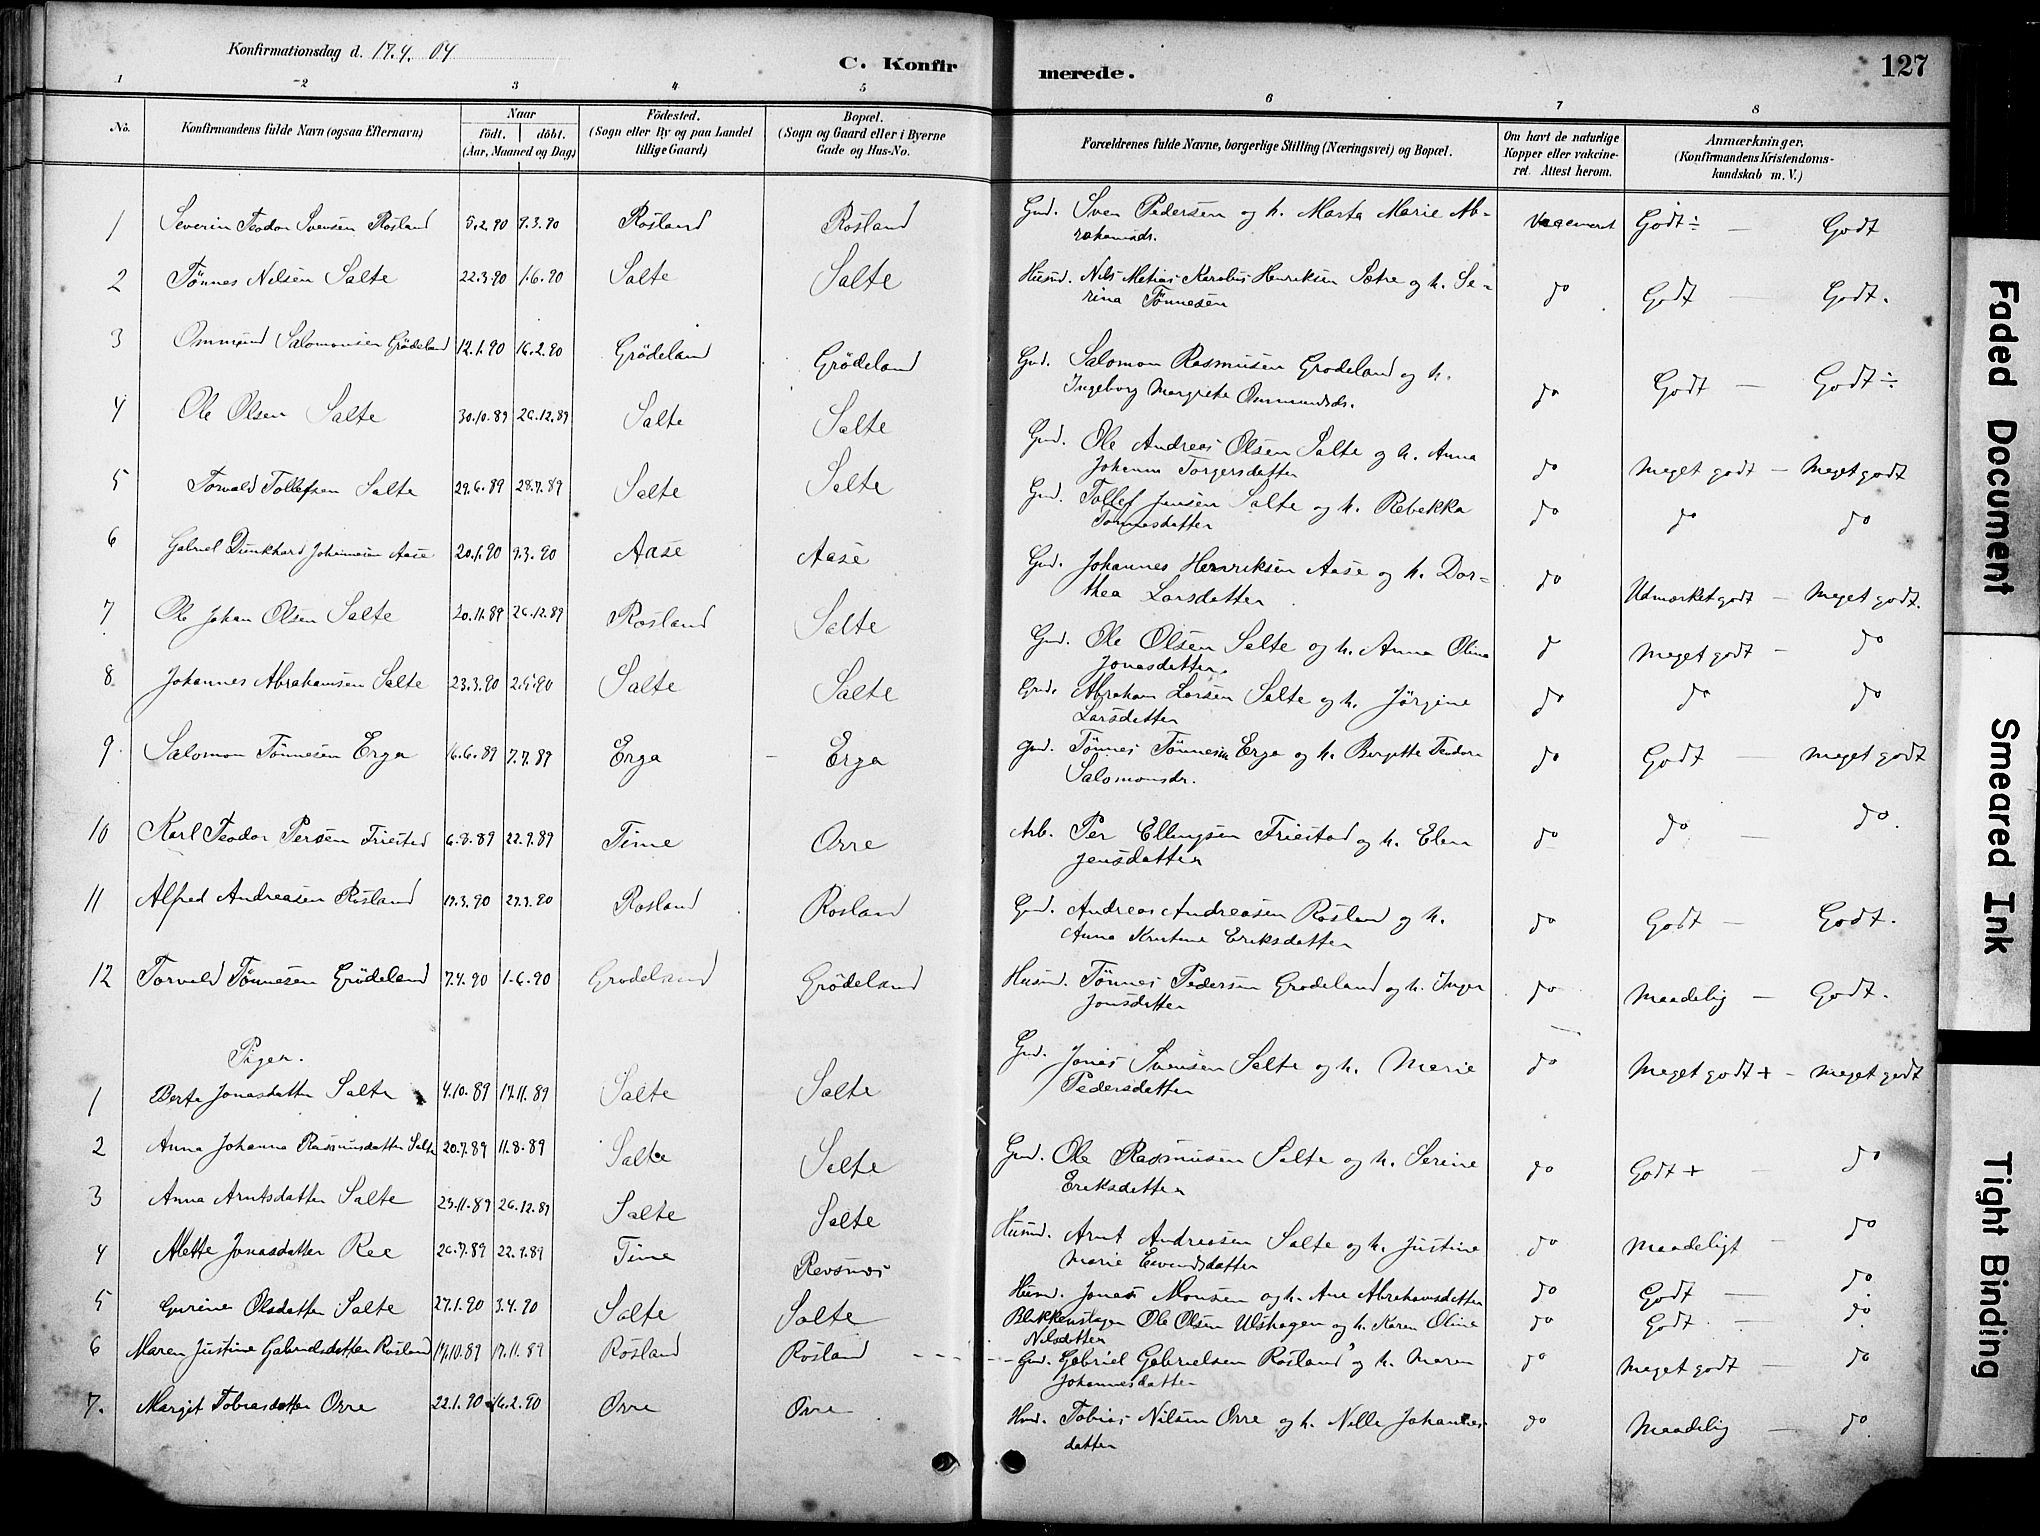 Konfirmationsdag d. 17.4. 04
C. Konfirmerede.
127
1 2 3 4 5 6 7 8
No.
Konfirmandens fulde Navn (ogsaa Efternavn)
Naar
födt. döbt.
(Aar, Maaned og Dag)
Födested.
(Sogn eller By og paa Landet
tillige Gaard)
Bopæl.
(Sogn og Gaard eller i Byerne
Gade og Hus-No.
Forældrenes fulde Navne, borgerlige Stilling (Næringsvei) og Bopæl.
Om havt de naturlige
Kopper eller vakcine-
ret. Attest herom.
Anmærkninger.
(Konfirmandens Kristendoms-
kundskab m. V.)
1 Severin Teodor Svensen Rosland 5.2.90 9.3.90 Rosland Rosland Gmd. Sven Pedersen og h. Marta Marie Ab-
rahamsdr. Godt ÷ — Godt
2 Tönnes Nilsen Salte 22.3.90 1.6.90 Salte Salte Husmd. Nils Matias Karolus Henriksen Sætre og h. Se-
rina Tönnesen do Godt — Godt.
3 Ommund Salomonsen Grödeland 12.1.90 16.2.90 Grödeland Grödeland Gmd. Salomon Rasmusen Grodeland og h.
Ingeborg Margrete Ommundsdr. do Godt — Godt ÷
4 Ole Olsen Salte 30.10.89 26.12.89 Salte Salte Gmd. Ole Andreas Olsen Salte og h. Anna
Johanna Torgersdatter do Meget godt — Meget godt
5 Torvald Tollefsen Salte 29.6.89 28.7.89 Salte Salte Gmd. Tollef Jensen Salte og h. Rebekka
Tönnesdatter do do do
6 Gabriel Johannesen Aase 20.1.90 9.3.90 Aase Aase Gmd. Johannes Henriksen Aase og h. Dor-
thea Larsdatter do Udmærket godt — Meget godt.
7 Ole Johan Olsen Salte 20.11.89 26.12.89 Rosland Salte Gmd. Ole Olsen Salte og h. Anna Olina
Jonasdatter do Meget godt — do
8. Johannes Abrahamsen Salte 23.3.90 Salte Salte Gmd. Abraham Larsen Salte og h. Jörgine
Larsdatter do do do
9. Salomon Tönnesen Erga 16.6.89 7.7.89 Erga Erga Gmd. Tönnes Tönnesen Erga og h. Bergitte Teodora
Salomonsdr. do Godt — meget godt
10 Karl Teodor Persen Friestad 6.8.89 22.9.89 Time Orre Arb. Per Ellingsen Friestad og h. Elen
Jensdatter do do — do.
11 Alfred Andreasen Rosland 19.3.90 27.4.90 Rosland Rosland Gmd. Andreas Andreasen Rosland og h.
Anna Kristine Eriksdatter do Godt — Godt.
12 Torvald Tönnesen Grödeland 7.4.90 1.6.90 Grodeland Grödeland Husmd. Tönnes Pedersen Grodeland og h. Inger
Jonsdatter do Maadelig — Godt.
Piger.
1 Berta Jonasdatter Salte 4.10.89 17.11.89 Salte Salte Gmd. Jonas Svensen Salte og h. Marie
Pedersdatter do Meget godt + - meget godt
2 Anna Johanna Rasmusdatter Salte 20.7.89 11.8.89 Salte Salte Gmd. Ole Rasmusen Salte og h. Serine
Eriksdatter do Godt + — do
3 Anna Arntsdatter Salte 23.11.89 26.12.89 Salte Salte Husmd. Arnt Andreasen Salte og h. Justine
Marie Eivindsdatter do Maadeligt — do
4 Mette Jonasdatter Ree 26.7.89 22.9.89 Time Revsnæs Husmd. Jonas Monsen og h. Ane Abrahamsdatter do Godt — do
5 Gurine Olsdatter Salte 27.1.90 3.4.90 Salte Salte Blikkenslager Ole Olsen Ulshagen og h. Karen Oline
Nilsdatter do Godt — do
6 Maren Justine Gabrielsdatter Rosland 19.10.89 17.11.89 Rosland Rosland - - - - - Gmd. Gabriel Gabrielsen Rosland og h. Maren
Johannesdatter do Meget godt do
7. Margit Tobiasdatter Orre 22.1.90 16.2.90 Orre Orre Hmd. Tobias Nilsen Orre og h. Nille Johannes-
datter do Maadelig — do.
Faded Document
Smeared Ink
Tight Binding